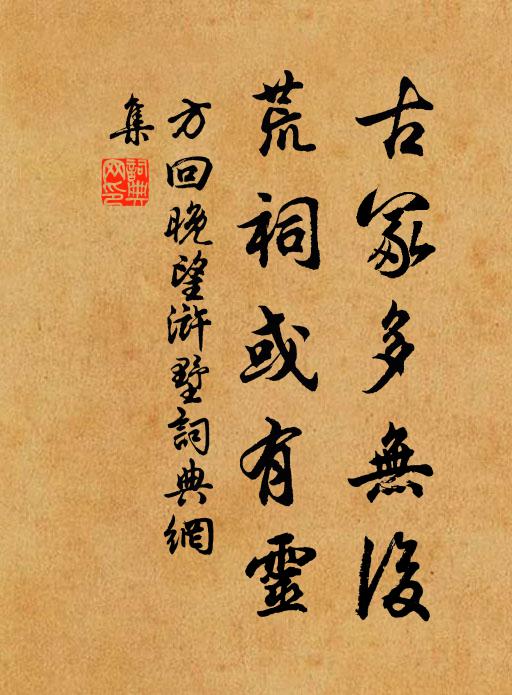 古冢多無後
荒祠或有靈
方回晚望滸墅詞典網
集
詞典網印